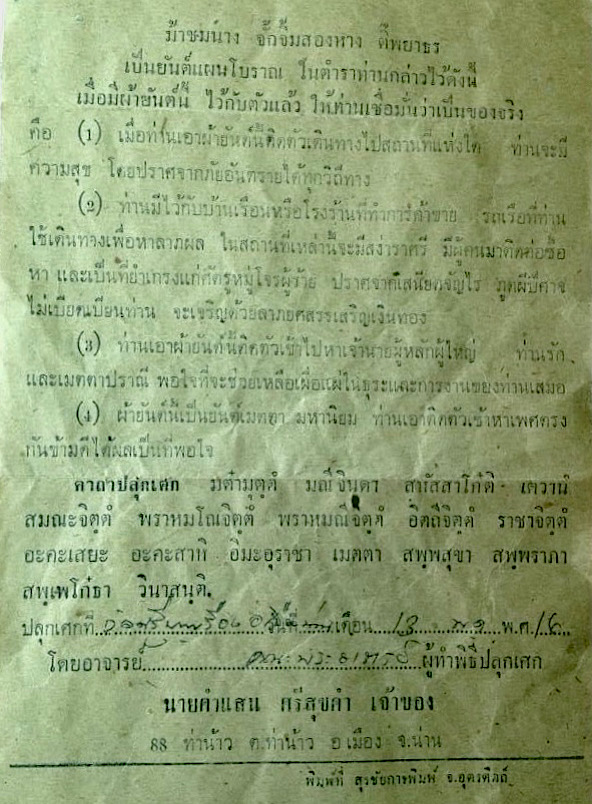 ม้าชมนาง จักจิ้มสองหาง ติ์พยาธร
เป็นยันต์แผนโบราณ ในตำราท่านกล่าวไว้ดังนี้
เมื่อมีผ้ายันต์นี้ ไว้กับตัวแล้ว ให้ท่านเชื่อมั่นว่าเป็นของจริง
คือ (1) เมื่อท่านเอาผ้ายันต์นี้ติดตัวเดินทางไปสถานที่แห่งใด ท่านจะมี
ความสุข โดยปราศจากภัยอันตรายได้ทุกวิถีทาง
(2) ท่านมีไว้กับบ้านเรือนหรือโรงร้านที่ทำการค้าขาย รถเรือที่ท่าน
ใช้เดินทางเพื่อหาลาภผล ในสถานที่เหล่านี้จะมีสง่าราศรี มีผู้คนมาติดต่อซื้อ
หา และเป็นที่ยำเกรงแก่ศัตรูหมู่โจรผู้ร้าย ปราศจากเสนียดจัญไร ภูตผีปีศาจ
ไม่เบียดเบียนท่าน จะเจริญด้วยลาภยศสรรเสริญเงินทอง
(3) ท่านเอาผ้ายันต์นี้ติดตัวเข้าไปหาเจ้านายผู้หลักผู้ใหญ่ ท่านรัก
และเมตตาปราณี พอใจที่จะช่วยเหลือเผื่อแผ่ในธุระและการงานของท่านเสมอ
(4) ผ้ายันต์นี้เป็นยันต์เมตตา มหานิยม ท่านเอาติดตัวเข้าหาเพศตรง
กันข้ามดีได้ผลเป็นที่พอใจ
คาถาปลุกเศก มต๋ามุตฺตํ มณีจินดา สารัสสาโก๋ติ เตวานํ
สมณะจิตฺตํ พราหมโณจิตฺตํ พราหมณีจิตฺตํ อิตถีจิตฺตํ ราชาจิตฺตํ
อะคะเสยะ อะคะสาทิ อิมะอุราชา เมตตา สพฺพสุขา สพฺพราภา
สพฺเพโก๋ธา วินาสนฺติ.
ปลุกเศกที่ วันที่ เดือน 13 พ.ศ. 16
โดยอาจารย์ ผู้ทำพิธีปลุกเศก
นายคำแสน ศรีสุขคำ เจ้าของ
88 ท่าน้าว ต.ท่าน้าว อ เมือง จ.น่าน
พิมพ์ที่ สุรชัยการพิมพ์ จ.อุตรดิตถ์